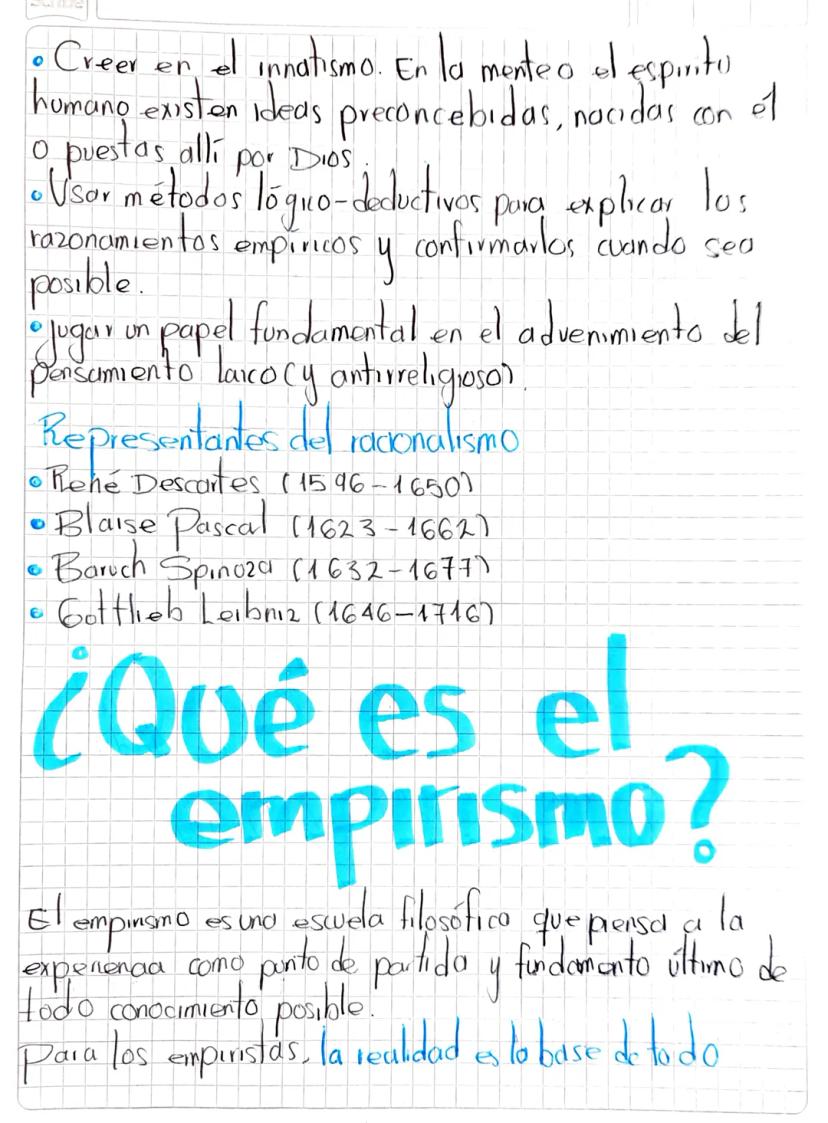 • Creer en el innatismo. En la mente o el espíritu
humano existen ideas preconcebidas, nacidas con él
o puestas allí por Dios.
• Usar métodos lógico-deductivos para explicar los
razonamientos empíricos y confirmarlos cuando sea
posible.
• Jugar un papel fundamental en el advenimiento del
pensamiento laico (y antirreligioso).
Representantes del racionalismo
• René Descartes (1596-1650)
• Blaise Pascal (1623-1662)
• Baruch Spinoza (1632-1677)
• Gottlieb Leibniz (1646-1716)
¿Qué es el
empirismo?
El empirismo es una escuela filosófica que piensa a la
experiencia como punto de partida y fundamento último de
todo conocimiento posible.
Para los empiristas, la realidad es la base de todo